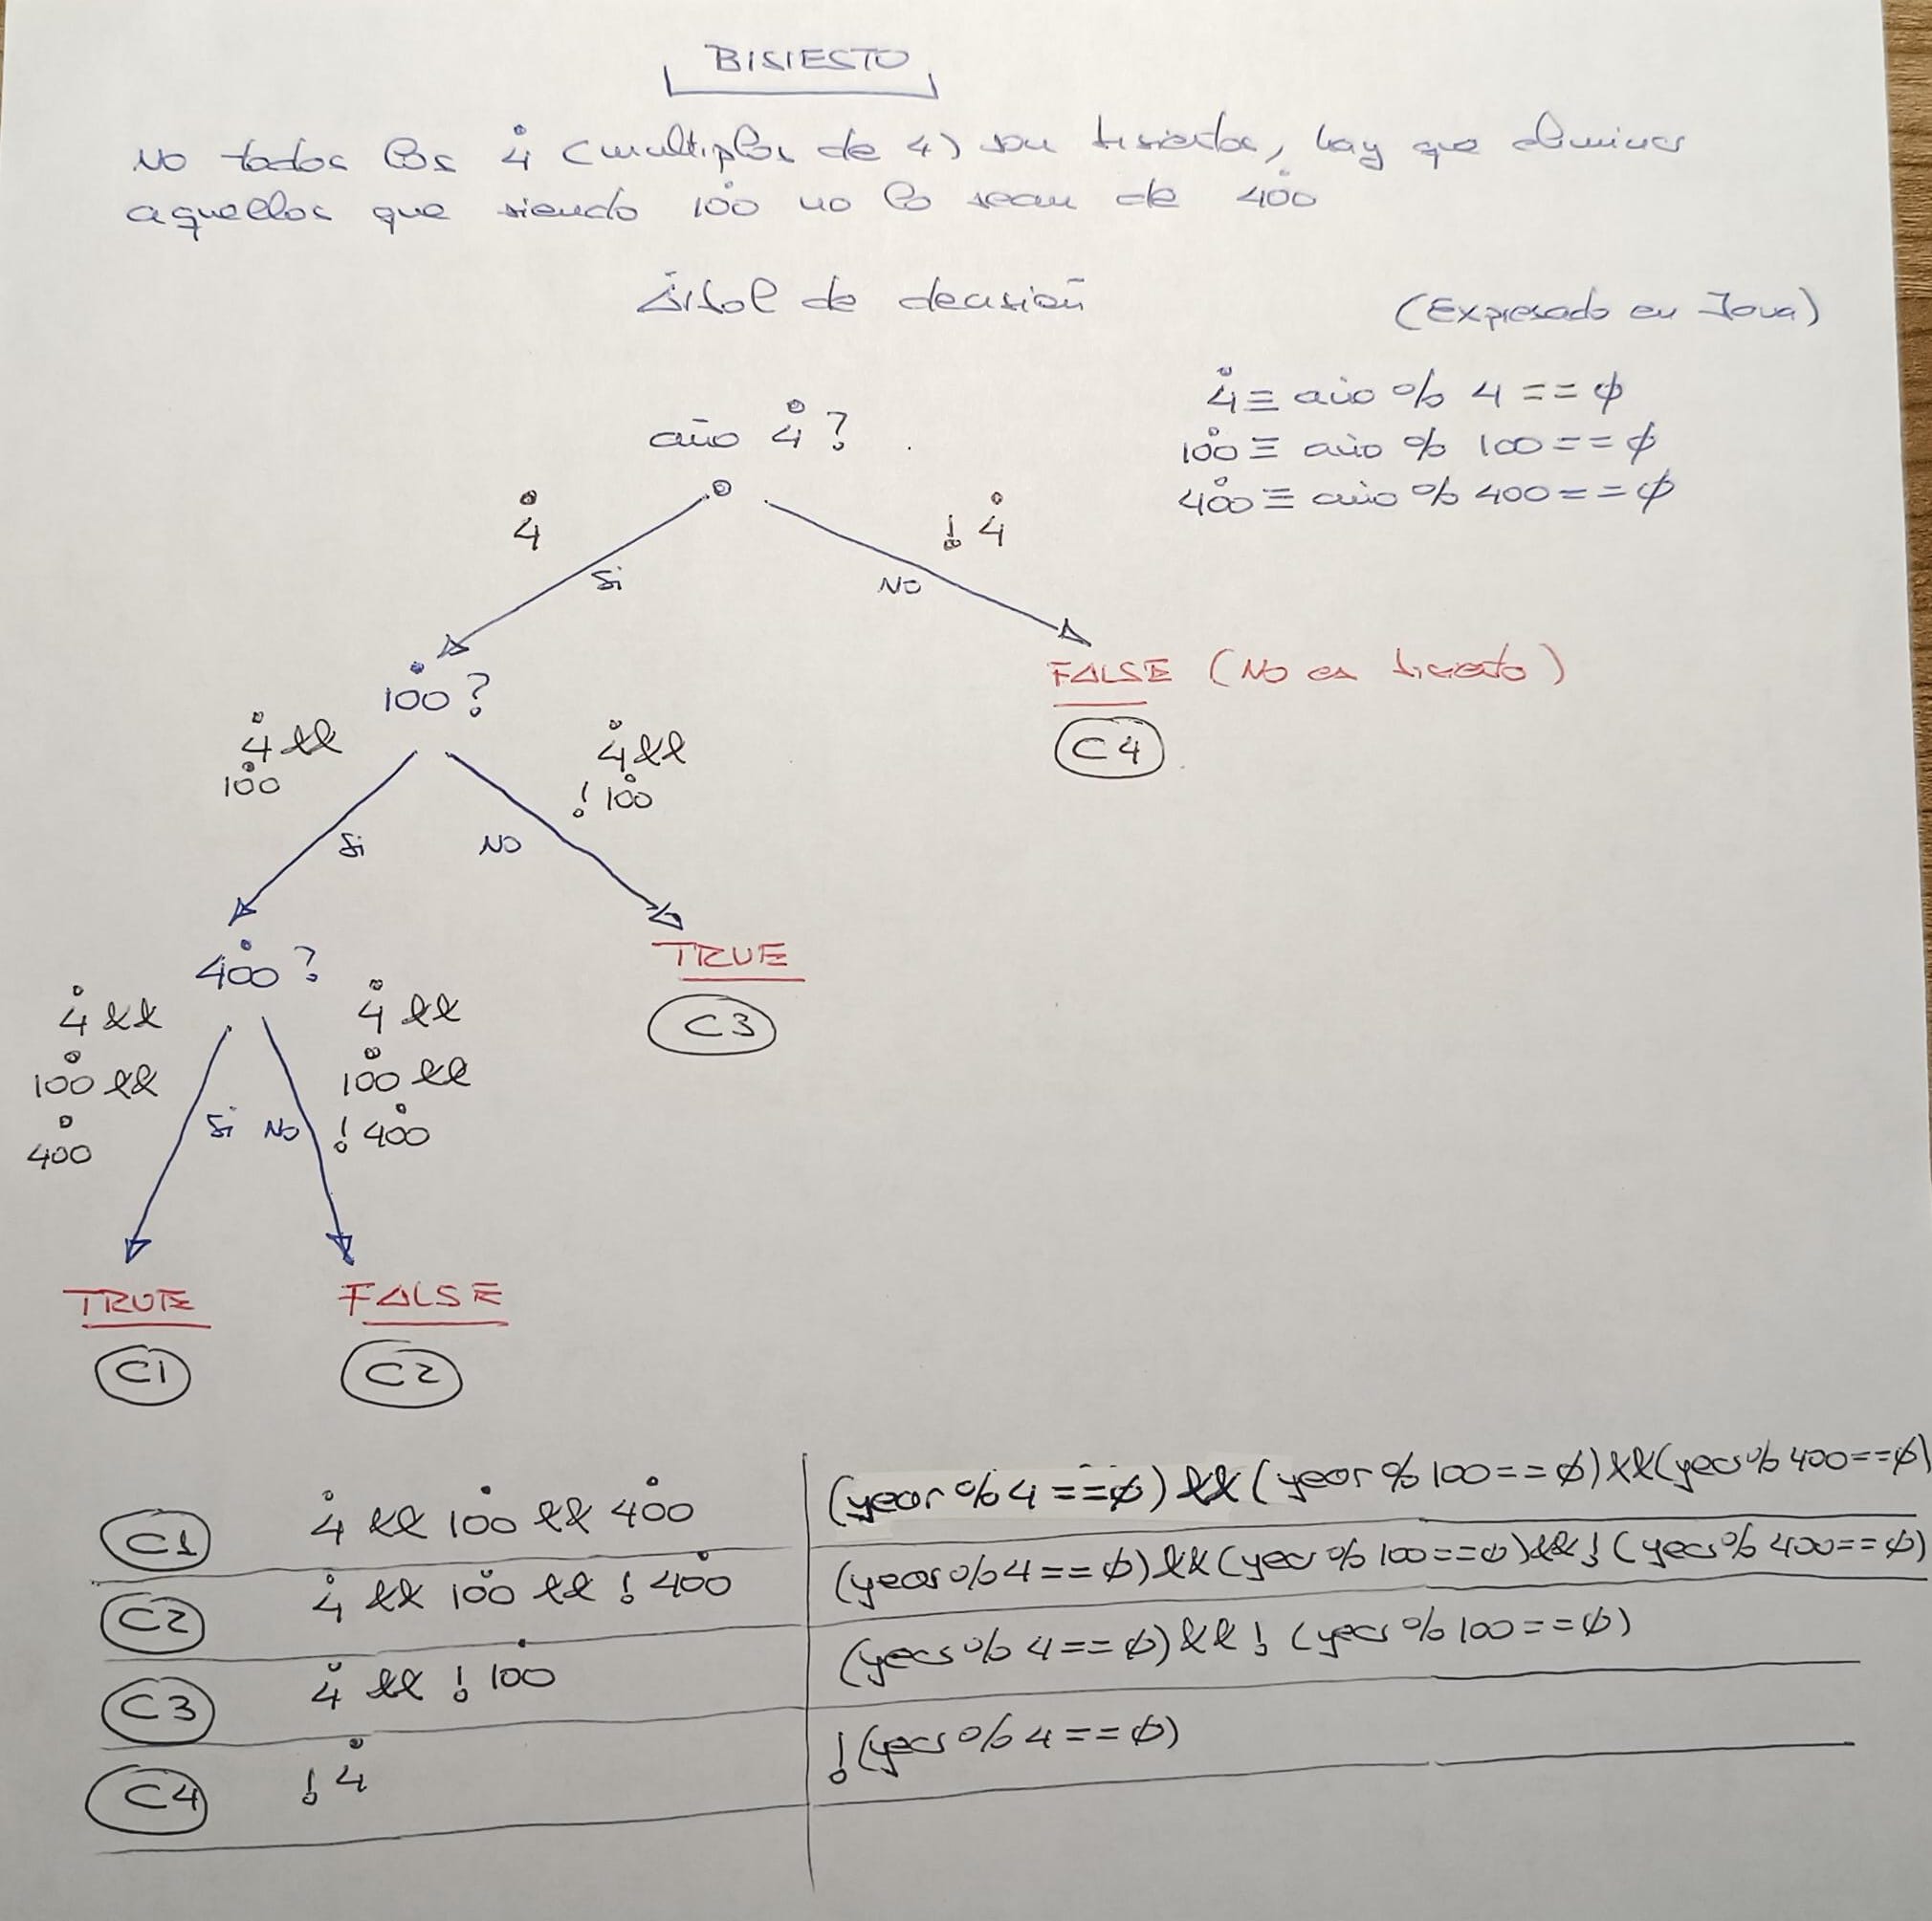 BISIESTO
No todos los 4̊ (multiplos de 4) son bisiestos, hay que eliminar
aquellos que siendo 10̊0 no lo sean de 40̊0
Árbol de decisión
(Expresado en Java)
4̊ ≡ año % 4 == 0
10̊0 ≡ año % 100 == 0
40̊0 ≡ año % 400 == 0
año 4̊ ?
4̊
! 4̊
Si
NO
10̊0 ?
FALSE (No es bisiesto)
C4
4̊ &&
10̊0
4̊ &&
! 10̊0
Si
NO
40̊0 ?
TRUE
C3
4̊ &&
10̊0 &&
40̊0
4̊ &&
10̊0 &&
! 40̊0
Si
NO
TRUE
FALSE
C1
C2
C1 4̊ && 10̊0 && 40̊0 (year % 4 == 0) && (year % 100 == 0) && (year % 400 == 0)
C2 4̊ && 10̊0 && ! 40̊0 (year % 4 == 0) && (year % 100 == 0) && ! (year % 400 == 0)
C3 4̊ && ! 10̊0 (year % 4 == 0) && ! (year % 100 == 0)
C4 ! 4̊ ! (year % 4 == 0)